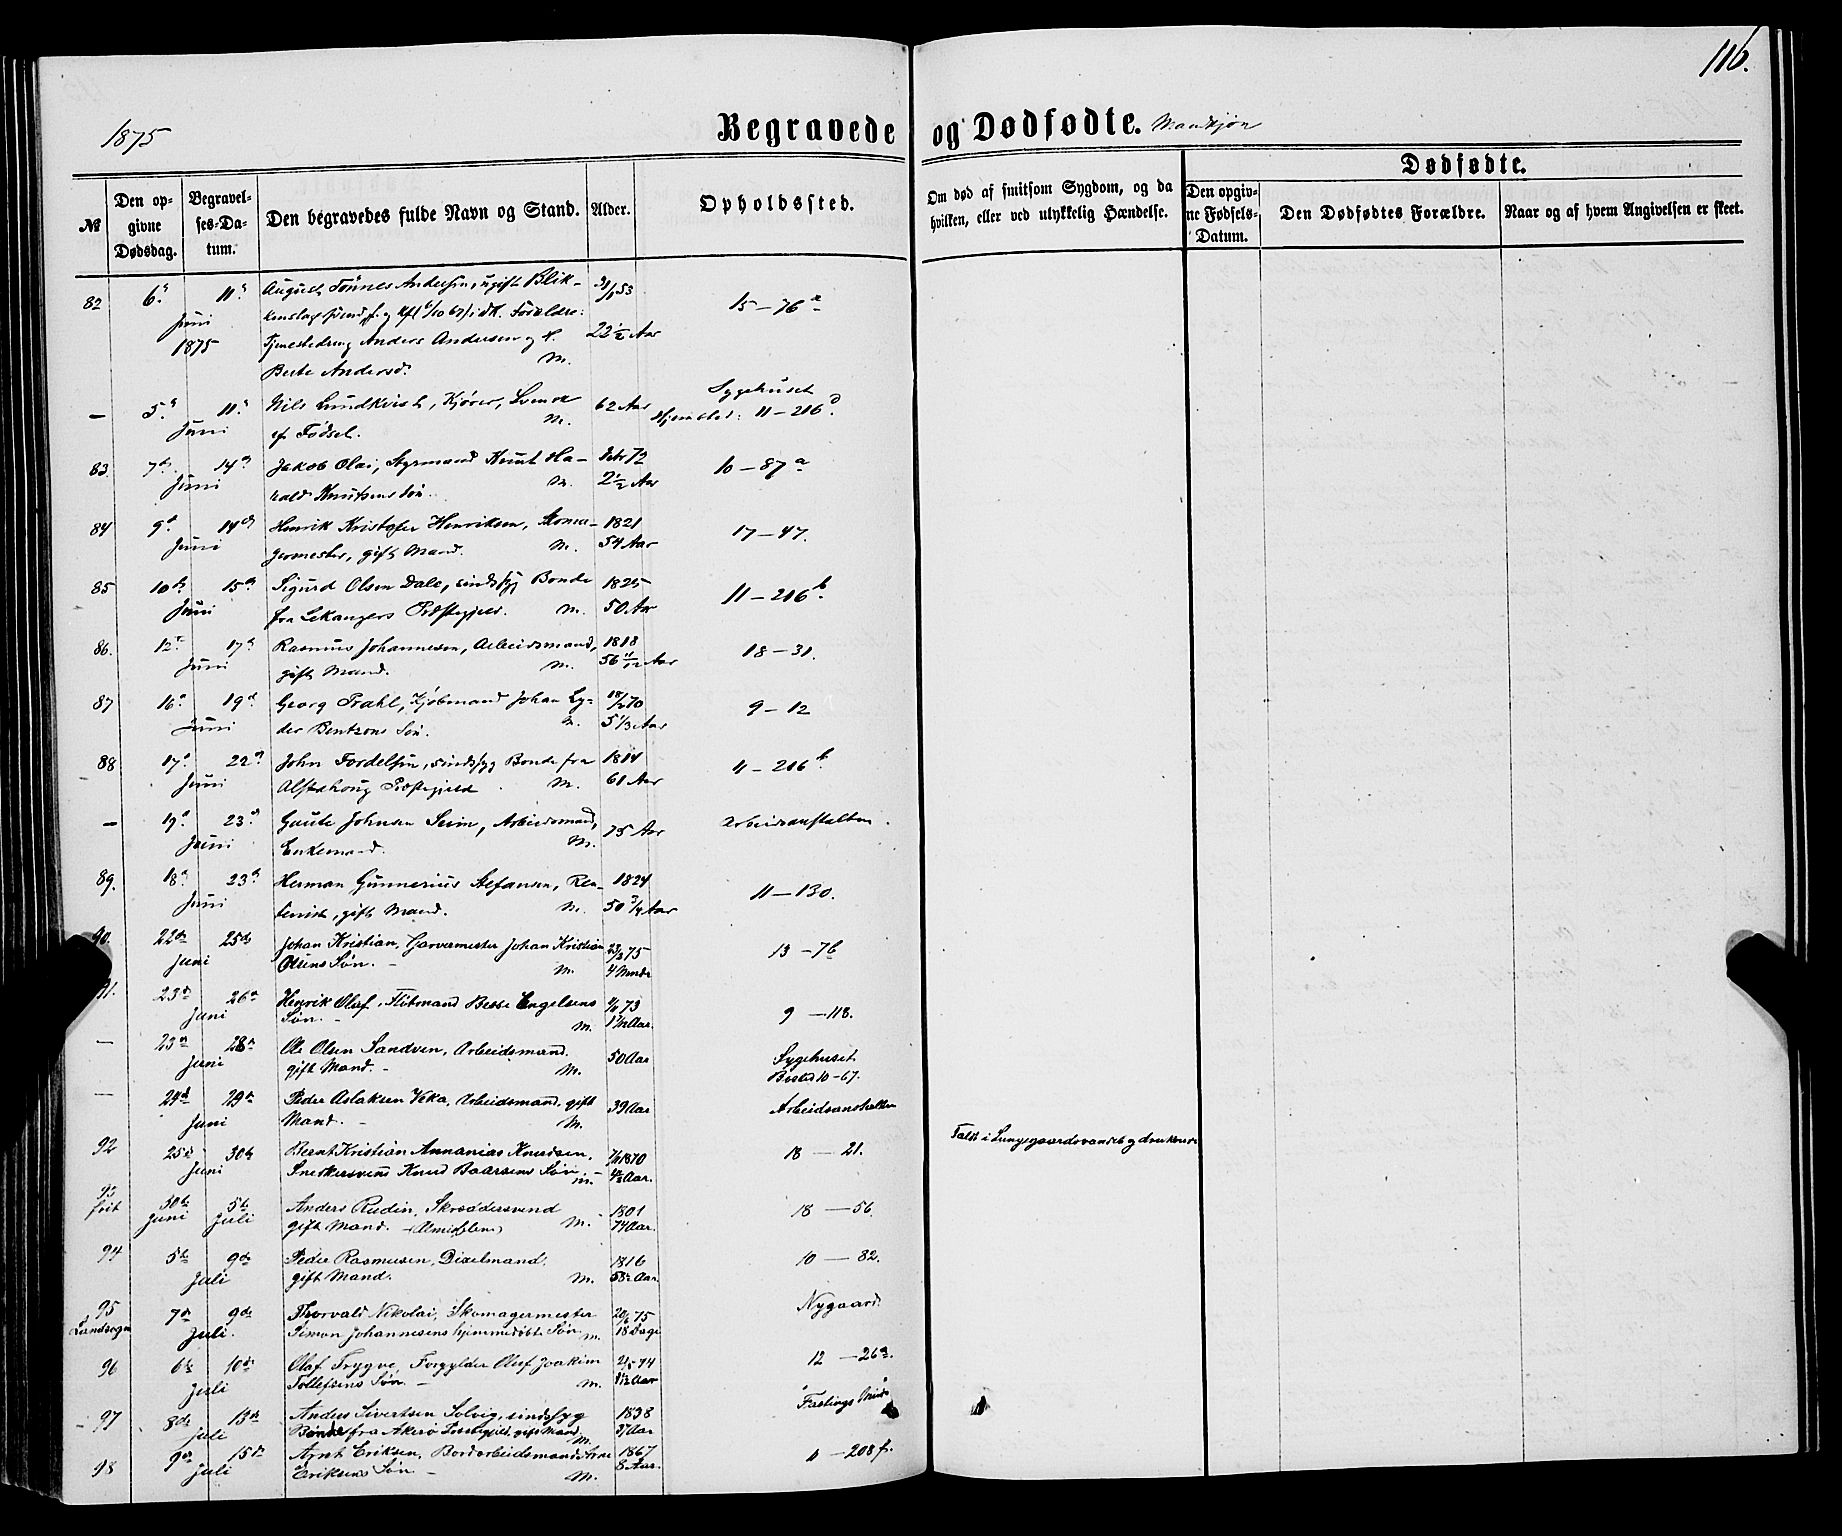 116.
1875
Begravede og Dødfødte. Mandkjøn
№
Den opgivne Dødsdag.
Begravelses-Datum.
Den begravedes fulde Navn og Stand.
Alder.
Opholdssted.
Om død af smitsom Sygdom, og da hvilken, eller ved ulykkelig Hændelse.
Dødfødte.
Den opgivne Fødsels-Datum.
Den Dødfødtes Forældre.
Naar og af hvem Angivelsen er skeet.
82 6. 11. August Tønnes Andersen, ugift Blik-
Juni 1875 Forældre: 22½ Aar 15 — 76 a
Tjenestedreng Anders Andersen og H.
Berte Andersd. M.
— 5. 11. Nils Lundkvist, Kjører, Svensk 62 Aar Sygehuset
Juni af Fødsel. M. Hjemsted: 11 — 216 d.
83. 7de 14de Jakob Olai, Styrmand Knut Ha- Febr 72 10 — 87 a
Juni rald Knutsens Søn. M. 2½ Aar
84 9. 14de Henrik Kristofer Henriksen, Skoma- 1821 17 — 47.
Juni germester, gift Mand. M. 54 Aar
85 10de 15de Sigurd Olsen Dale, sindssyg Bonde 1825 11 — 216 b.
Juni fra Lekangers Præstegjeld. M. 50 Aar
86. 12te 17de Rasmus Johannesen, Arbeidsmand, 1818 18 — 31.
Juni gift Mand. M. 56 11/12 Aar
87 16de 19de Georg Prahl, Kjøbmand Johan Ly- 18/2 70 9 — 12
Juni der Bentzons Søn. M. 5⅓ Aar
88 17de 22de John Fordelsen, sindssyg Bonde fra 1814 11 — 216 b.
Juni Alstahoug Præstegjeld M. 61 Aar
— 19de 23de Gaute Johnsen Seim, Arbeidsmand, 75 Aar Arbeidsanstalten.
Juni Enkemand. M.
89. 18de 23de Herman Gunnerius Stefansen, Ren- 1824 11 — 130.
Juni tenist, gift Mand. M. 50¾ Aar
90. 22de 25de Johan Kristian, Garvermester Johan Kristian 22/2 75 13 — 7b
Juni Olsens Søn. — M. 4 Mndr
91. 23de 26de Henrik Oluf, Flødmand Besse Engelsens 73 9 — 118.
Juni Søn. — M. Aar.
— 23de 28de Ole Olsen Sandven, Arbeidsmand. 50 Aar Sygehuset
Juni gift Mand. — M. Bosted 10 — 67.
— 24de 29de Peder Aslaksen Veka, Arbeidsmand, gift 39 Aar Arbeidsanstalten
Juni Mand. — M.
92 25de 30te Bernt Kristian Annanias Knudsen, 1870 18 — 21. Faldt i Lungegaardsvandet og druknede
Juni Snedkersvend Knud Baarsens Søn. — M. Aar.
93 30te 5te Anders Rudin, Skræddersvend 1801 18 — 56.
frit Juni Juli gift Mand. — (Almisselem) M. 74 Aar.
94 5te 9de Peder Rasmusen, Dixelmand. 1816 10 — 82.
Juli gift Mand. M. 58½ Aar
95 7de 9de Thorvald Nikolai, Skomagermester 20/6 75 Nygaard.
Landsogn Juli. Simon Johannesens hjemmedøbte Søn. M. 18 Dage
96 6te 10de Olaf Trygve, Forgylder Oluf Joakim 74 12 — 26 a.
Juli Tollefsens Søn. — M. Aar
97 8de 13de Anders Sivertsen Solvig, sindssyg 1838 Fastings Minde
Juli Bonde fra Akerø Præstegjeld, gift Mand. M. 37 Aar
98 9de 15de Arnt Eriksen, Bordarbeidsmand Arne 1867 11 — 208 f.
Juli Eriksens Søn — M. 8 Aar.